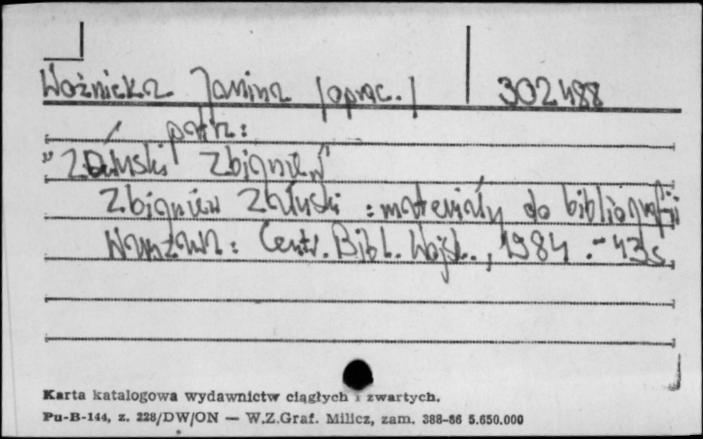 Woźnicka Janina /oprac./ 302488
patrz:
"Załuski Zbigniew"
Zbigniew Załuski : materiały do bibliografii
Warszawa : Centr. Bibl. Wojsk., 1984 .- 43 s.
Karta katalogowa wydawnictw ciągłych i zwartych.
Pu-B-144, z. 228/DW/ON — W.Z.Graf. Milicz, zam. 388-86 5.650.000